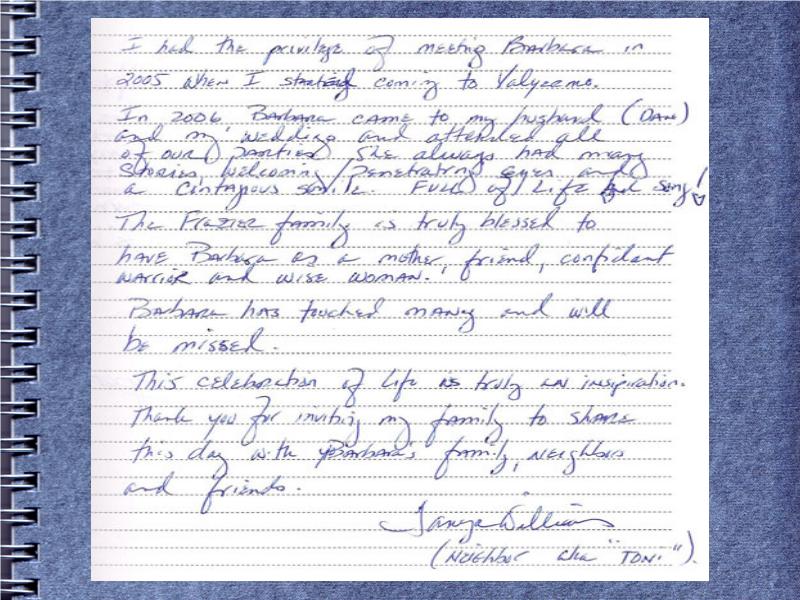 I had the privilege of meeting Barbara in
2005 when I started coming to Valyermo.
In 2006 Barbara came to my husband (Dan)
and my wedding and attended all
of our parties. She always had many
stories, welcoming/penetrating eyes and
a contagous smile. Full of Life and song!
The Frazier family is truly blessed to
have Barbara as a mother, friend, confidant
warrior and wise woman.
Barbara has touched many and will
be missed.
This celebration of Life is truly an insipiration.
Thank you for inviting my family to share
this day with Barbara's family, neighbors
and friends.
Tanya Williams
(Neighbor aka "Toni").